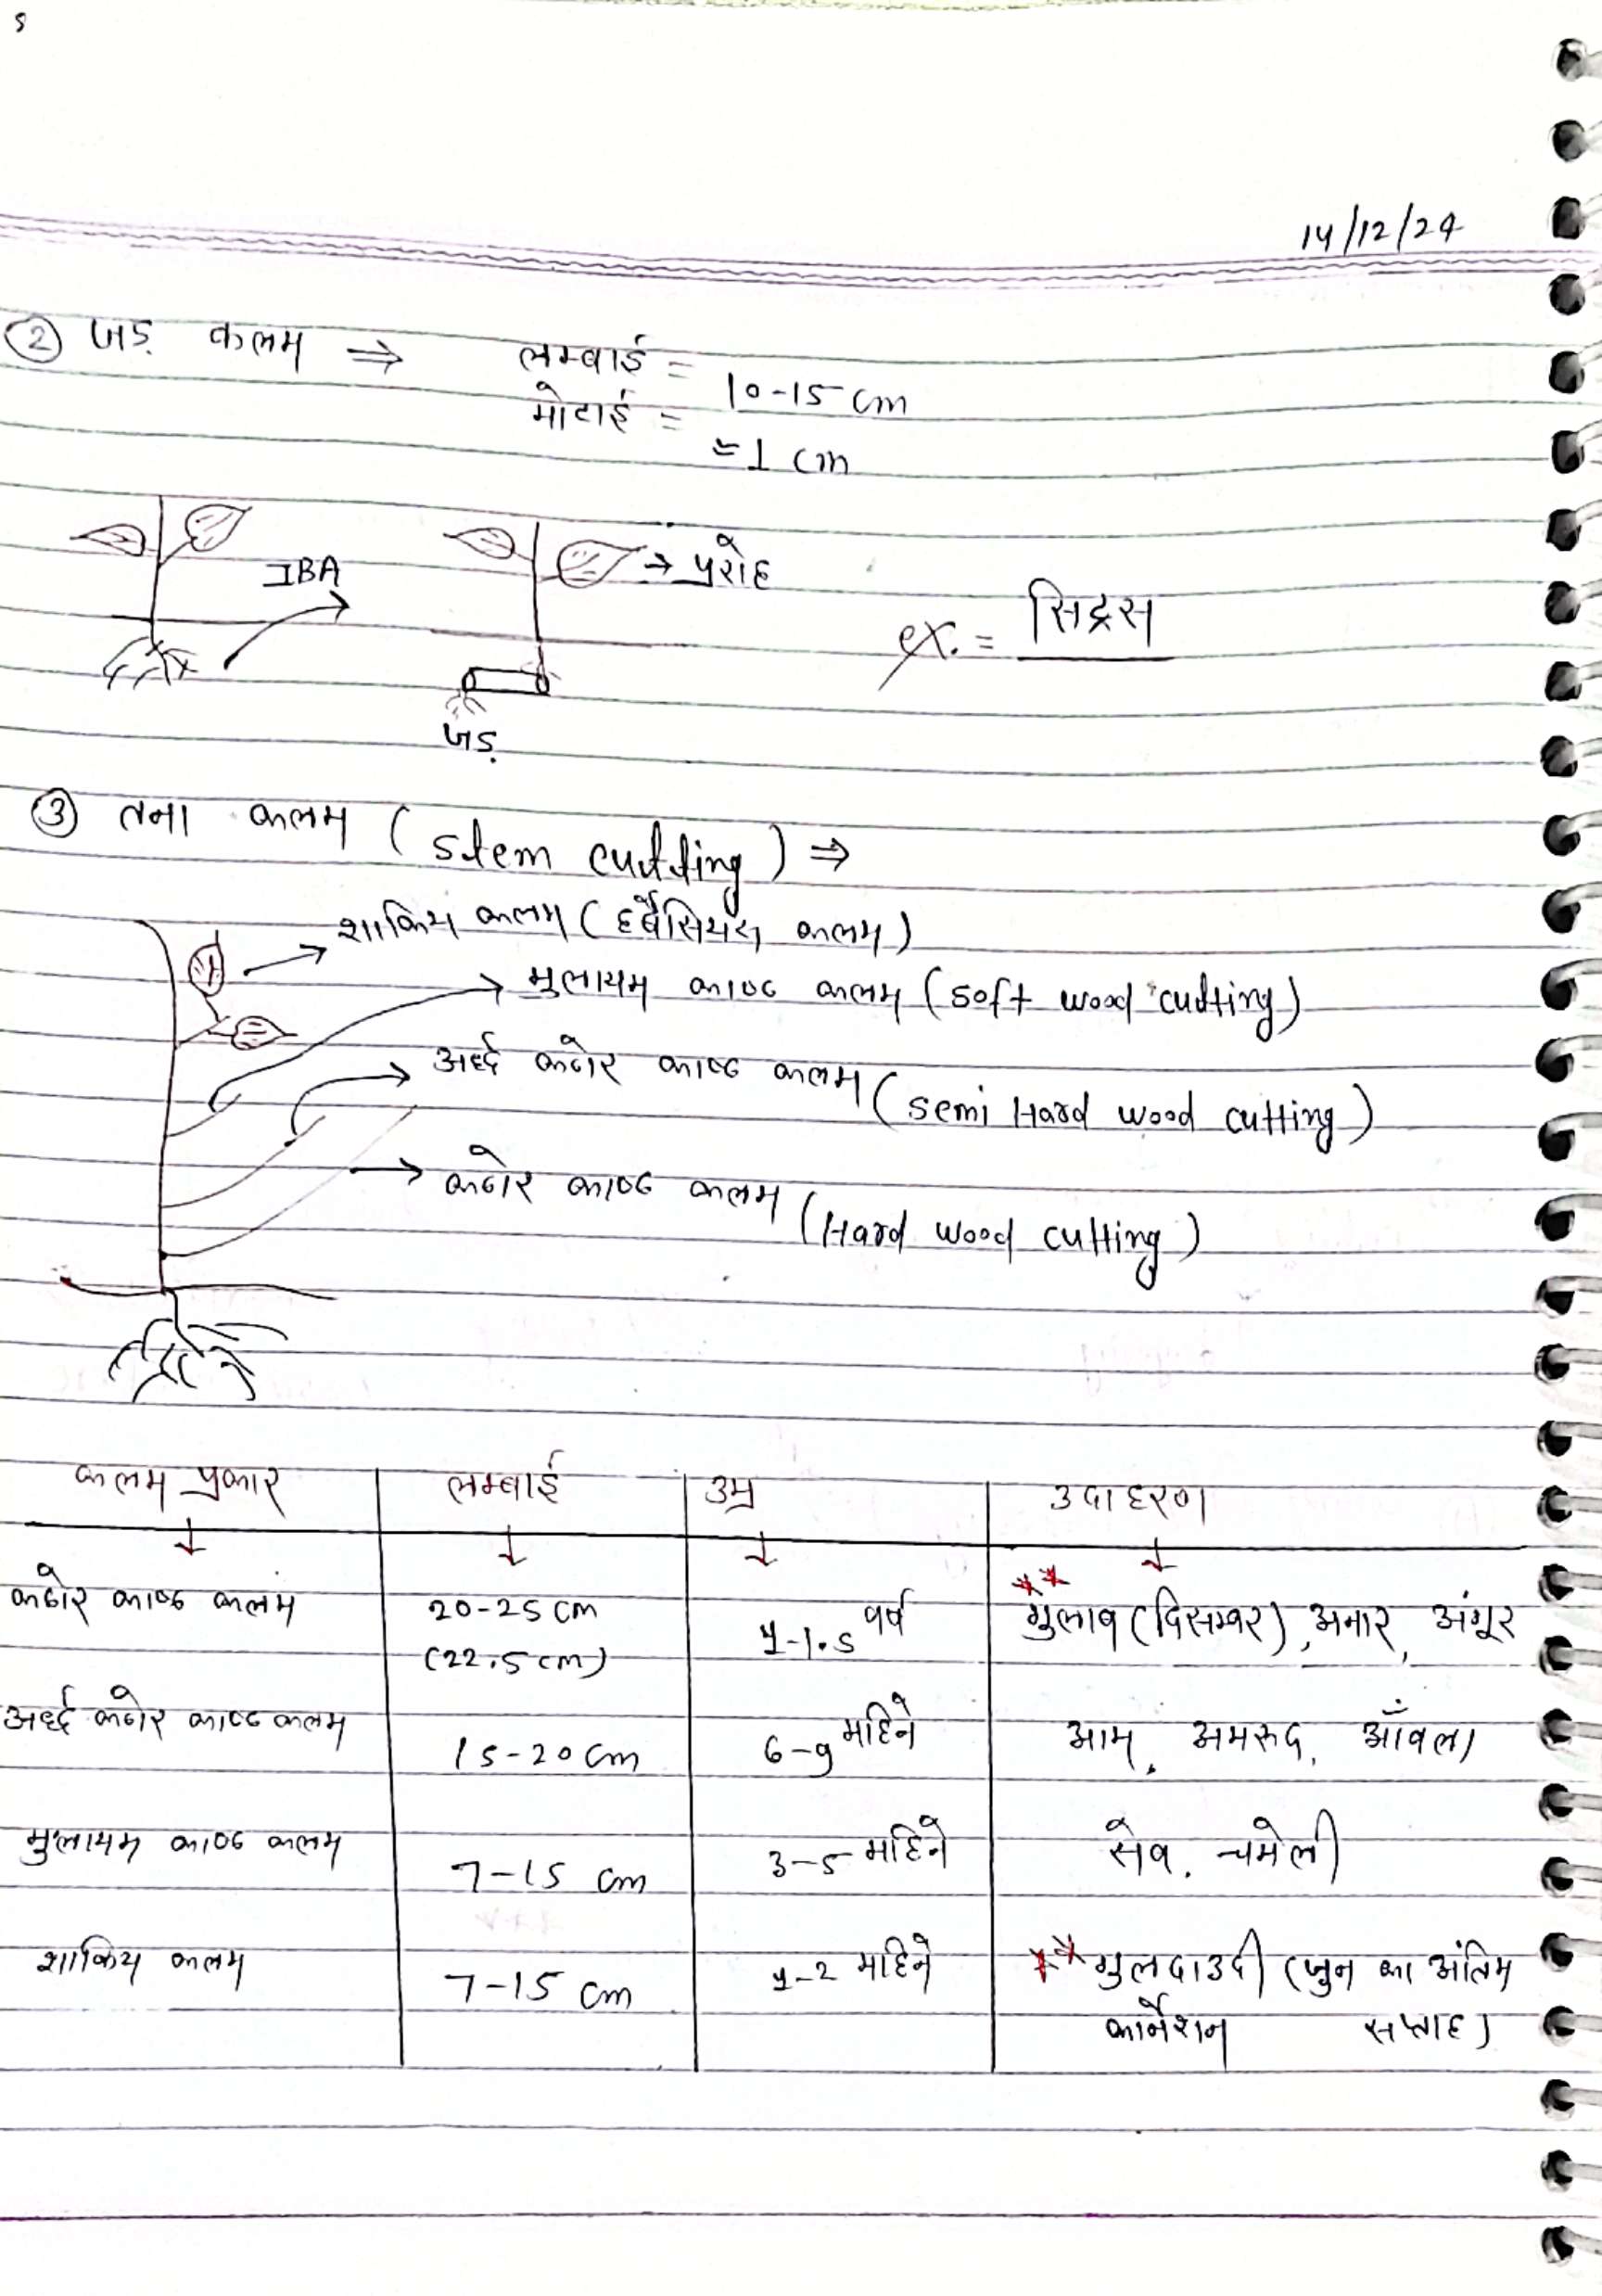 14/12/24
② जड़ कलम ⇒ लम्बाई = 10-15 cm
मोटाई = ≈ 1 cm
IBA
→ प्ररोह
ex. = सिट्रस
जड़
③ तना कलम (stem cutting) ⇒
→ शाकिय कलम (हर्बेसियस कलम)
→ मुलायम काष्ठ कलम (soft wood cutting)
→ अर्ध्द कठोर काष्ठ कलम (semi Hard wood cutting)
→ कठोर काष्ठ कलम (Hard wood cutting)
कलम प्रकार लम्बाई उम्र उदाहरण
↓ ↓ ↓ ↓
कठोर काष्ठ कलम 20-25 cm 1-1.5 वर्ष ** गुलाब (दिसम्बर), अनार, अंगूर
(22.5 cm)
अर्ध्द कठोर काष्ठ कलम 15-20 cm 6-9 महिने आम, अमरूद, आँवला
मुलायम काष्ठ कलम 7-15 cm 3-5 महिने सेब, चमेली
शाकिय कलम 7-15 cm 1-2 महिने ** गुलदाउदी (जुन का अंतिम
कार्नेशन सप्ताह)